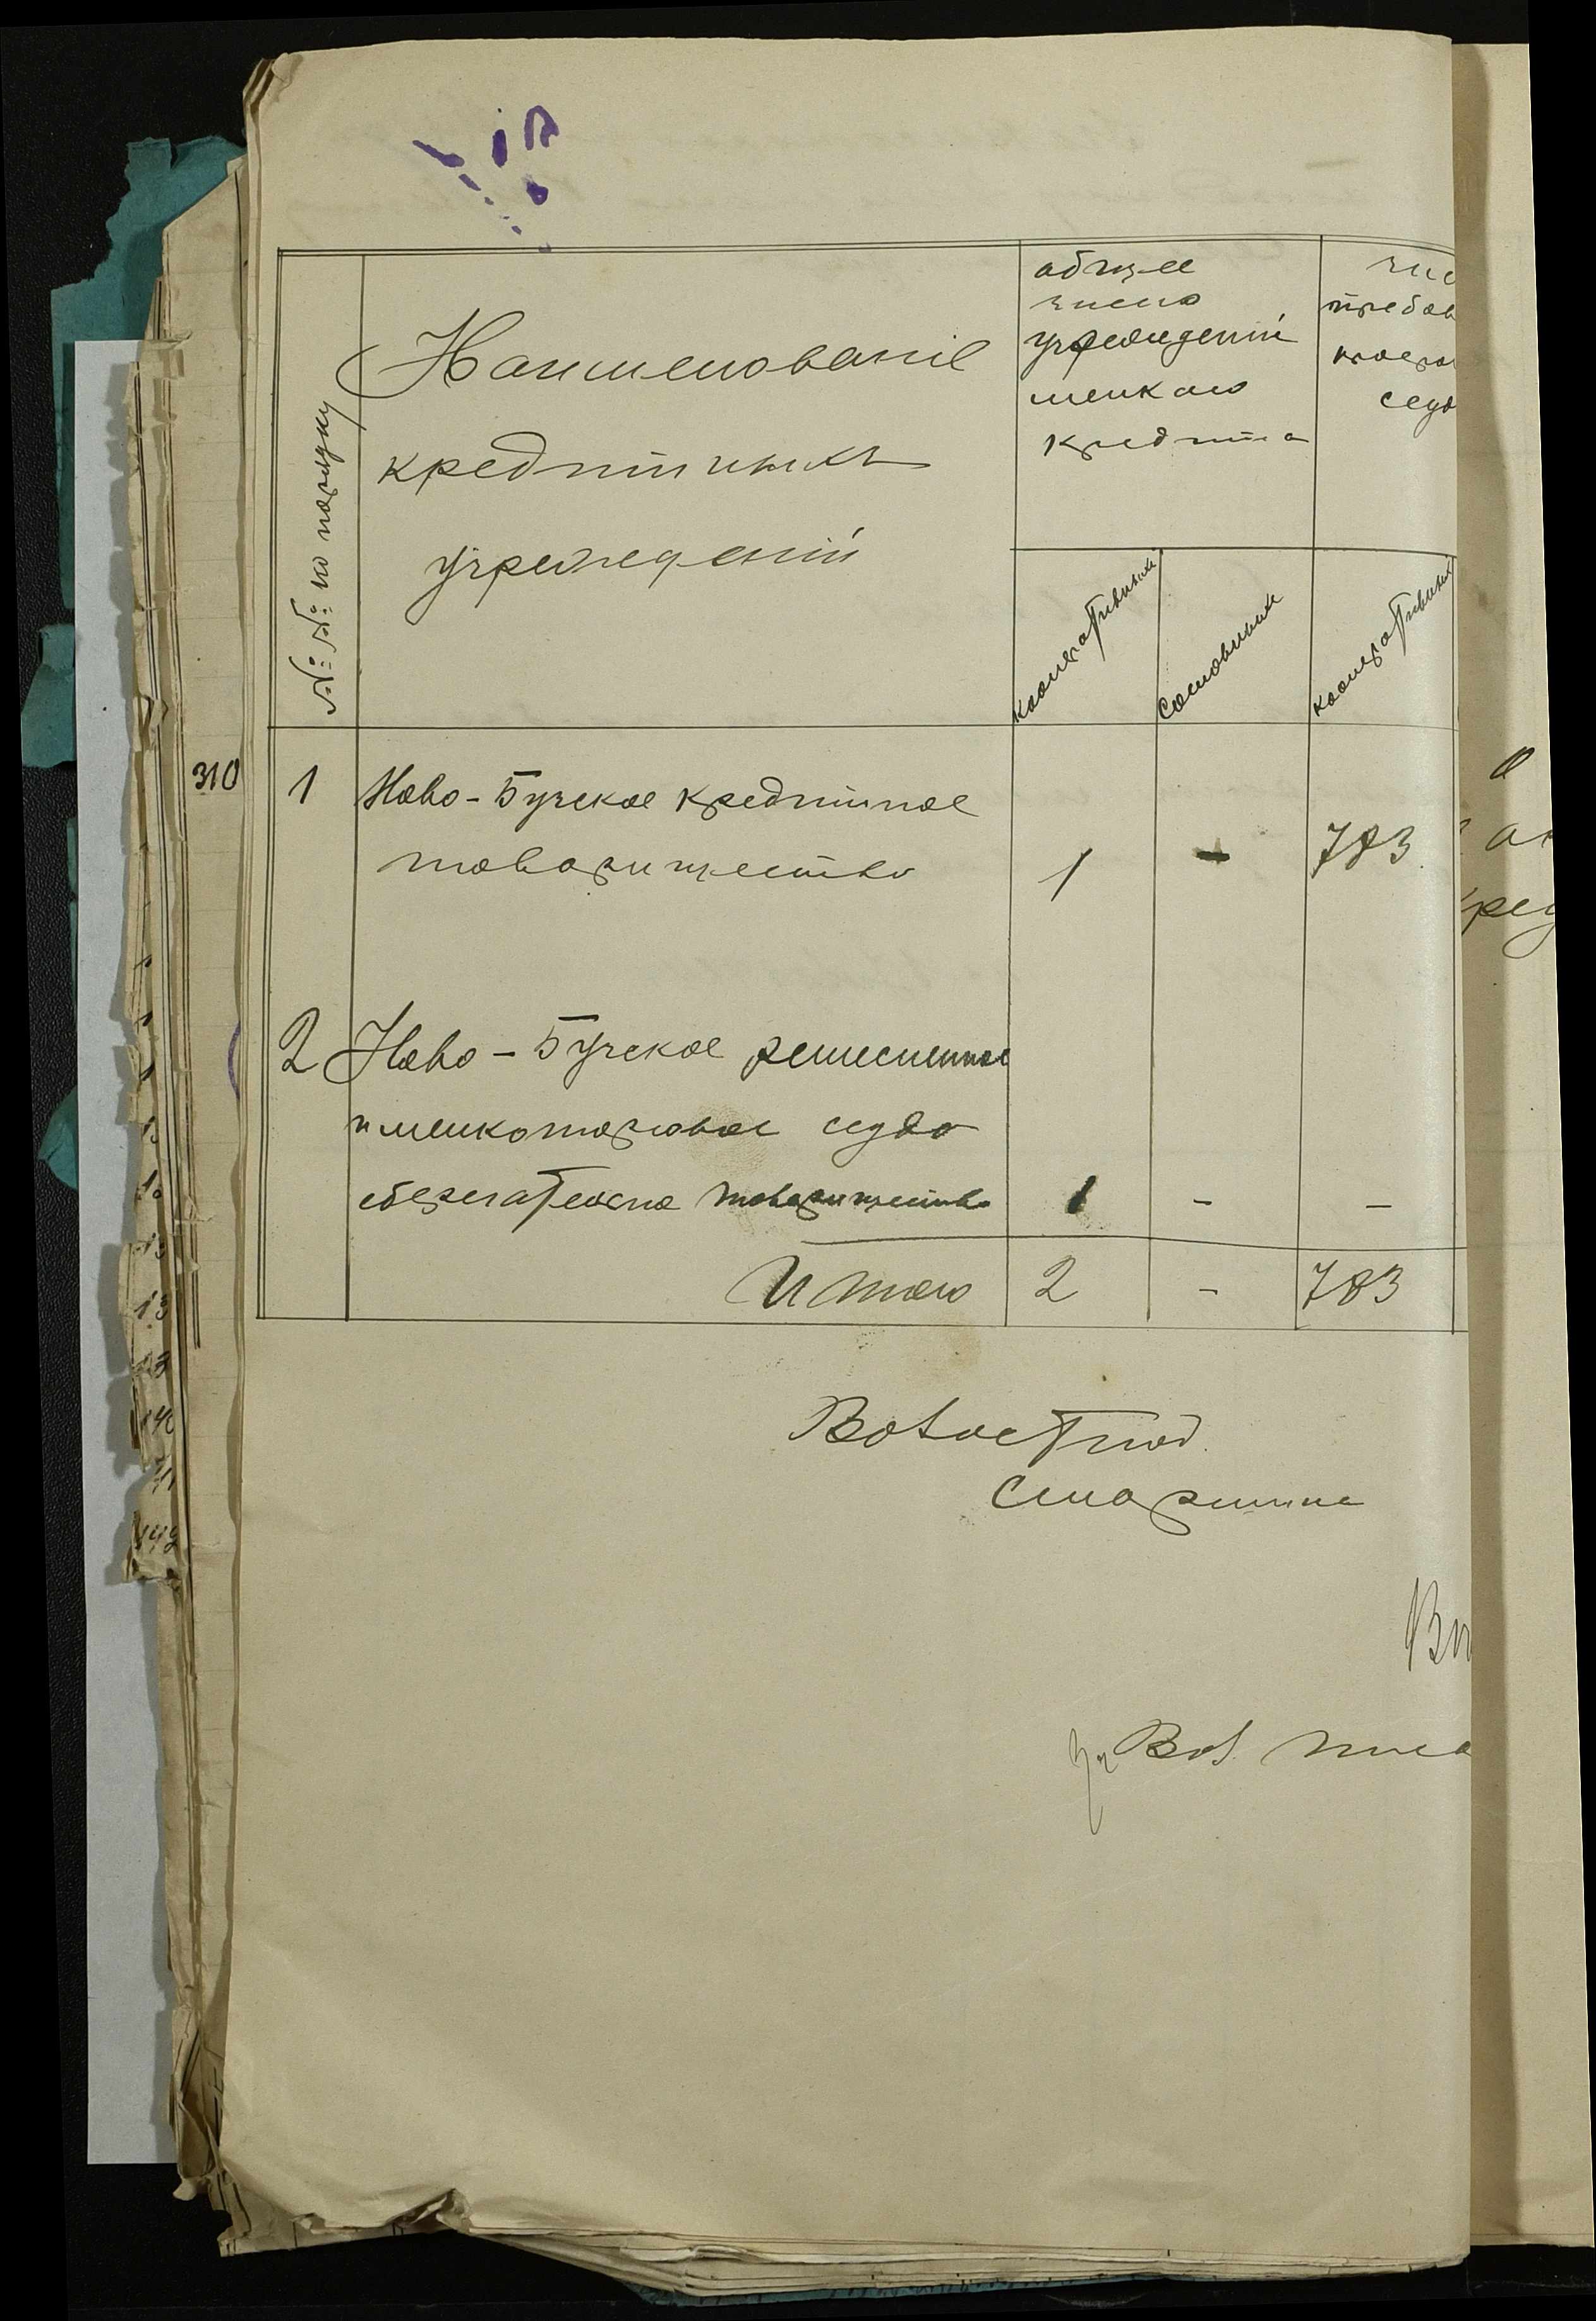 №№ по порядку
Наименованiе
кредитныхъ
учрежденiй
общее
число
учрежденiй
мелкаго
кредита
чис
требов
ссуд
кооперативныхъ
сословныхъ
кооперативныхъ
310
1 Ново-Бугское кредитное
товарищество 1 - 783
2 Ново-Бугское ремесленное
и мелкоторговое ссудо
сберегательное товарищество 1 - -
Итого 2 - 783
Волостной
Старшина
Вол. писа